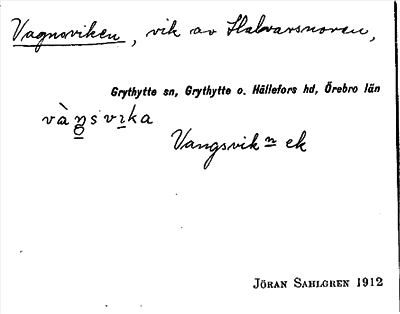 Vagnsviken, vik av Halvarsnoren,
Grythytte sn, Grythytte o. Hällefors hd, Örebro län
vàŋsvɪka
Vangsvikⁿ ek
JÖRAN SAHLGREN 1912